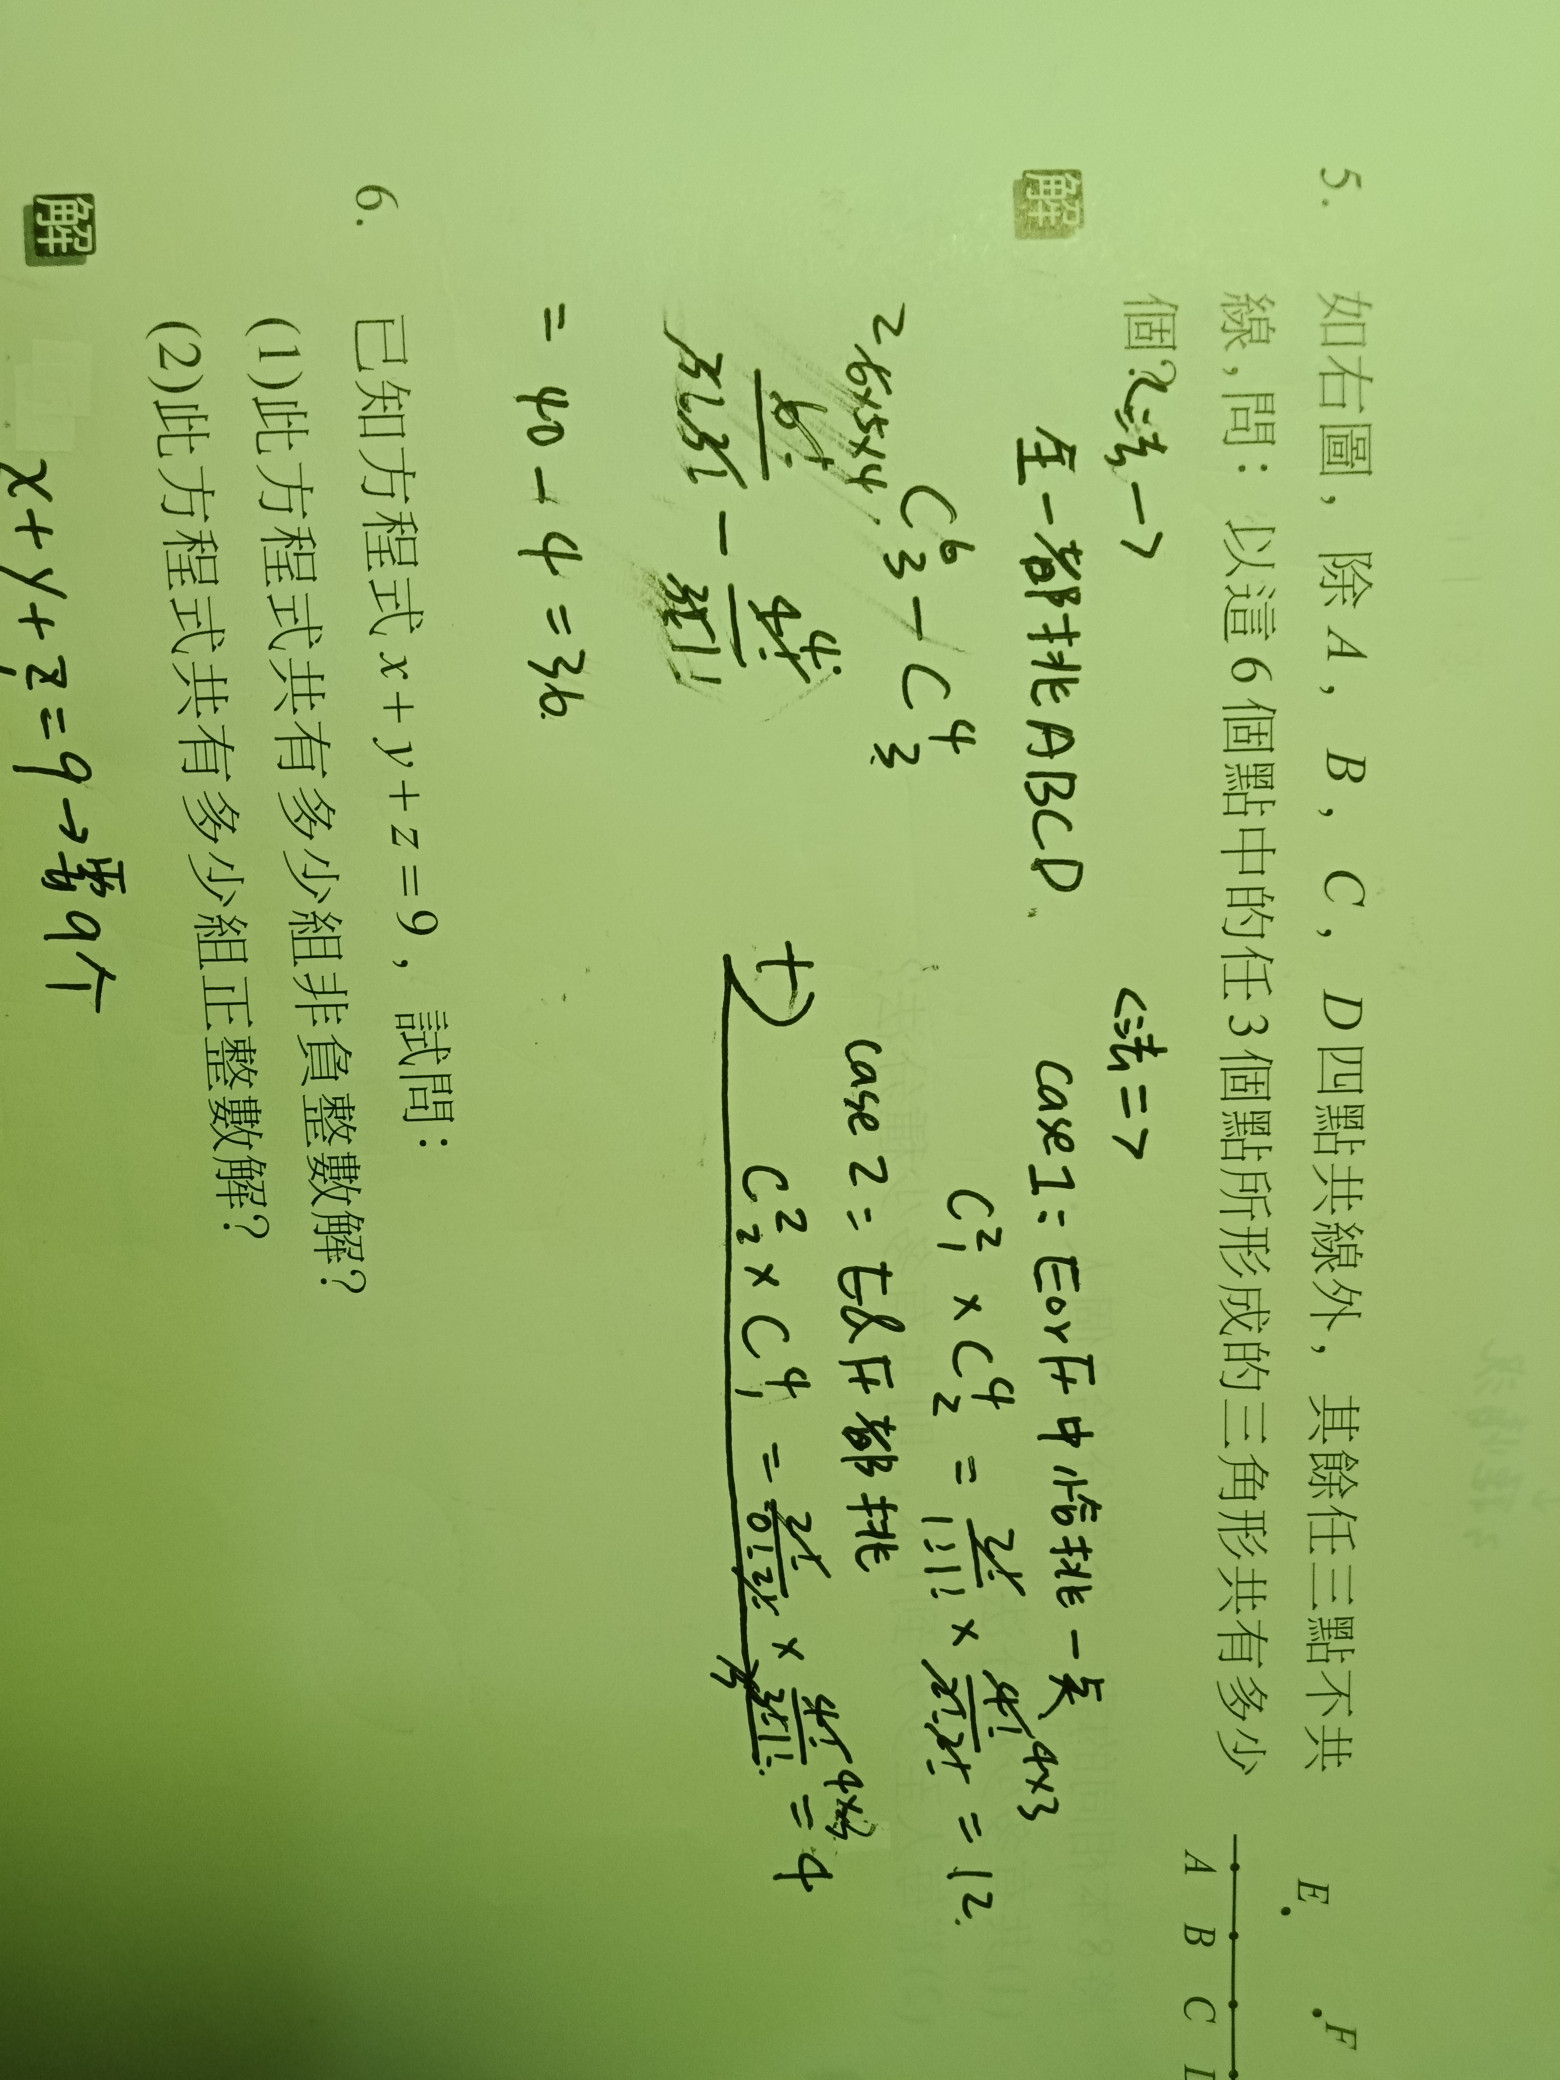 5. 如右圖，除 A，B，C，D 四點共線外，其餘任三點不共
線，問：以這 6 個點中的任 3 個點所形成的三角形共有多少
個？
E F
A B C
解
<法一>
全一都挑ABCD
C⁶₃ - C⁴₃
2 6×5×4
6! / 3!3! - 4! 4 / 3!1!
= 40 - 4 = 36
<法二>
case 1: E or F 中恰挑一点
C²₁ × C⁴₂ = 2! / 1!1! × 4! / 2!2! = 12
4×3
case 2: E & F 都挑
+) C²₂ × C⁴₁ = 2! / 0!2! × 4! / 3!1! = 4
6. 已知方程式 x+y+z=9，試問：
(1)此方程式共有多少組非負整數解？
(2)此方程式共有多少組正整數解？
解
x+y+z=9→需9个